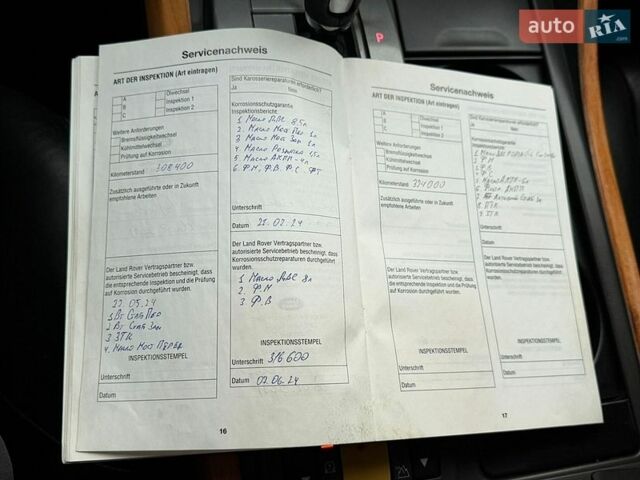 auto RIA
.com
P
Servicenachweis
ART DER INSPEKTION (Art eintragen)
A
B
C
Ölwechsel
Inspektion 1
Inspektion 2
Weitere Anforderungen
Bremsflüssigkeitwechsel
Kühlmittelwechsel
Prüfung auf Korrosion
Kilometerstand 308400
Zusätzlich ausgeführte oder in Zukunft
empfohlene Arbeiten
Der Land Rover Vertragspartner bzw.
autorisierte Servicebetrieb bescheinigt, dass
die entsprechende Inspektion und die Prüfung
auf Korrosion durchgeführt wurden.
22.05.24
1 Вт Стаб Пер
2 Вт Стаб Зад
3 ЗТК
4. Масло Мост Перед
INSPEKTIONSSTEMPEL
Unterschrift
Datum
Sind Karosseriereparaturen erforderlich?
Ja Nein
Korrosionsschutzgarantie
Inspektionsbericht
1 Масло ДВС 8,5л
2. Масло Мост
3 Масло Мост Зад 1л
4. Масло Раздатка 1,5л
5 Масло АКПП - 4л
6 Ф.М, Ф.В. Ф С
Unterschrift
Datum 21.02.24
Der Land Rover Vertragspartner bzw.
autorisierte Servicebetrieb bescheinigt, dass
Korrosionsschutzreparaturen durchgeführt
wurden.
1 Масло ДВС 8л
2. Ф.М
3. Ф.В
INSPEKTIONSSTEMPEL
Unterschrift 316600
Datum 02.06.24
16
Servicenachweis
ART DER INSPEKTION (Art eintragen)
A
B
C
Ölwechsel
Inspektion 1
Inspektion 2
Weitere Anforderungen
Bremsflüssigkeitwechsel
Kühlmittelwechsel
Prüfung auf Korrosion
Kilometerstand 324000
Zusätzlich ausgeführte oder in Zukunft
empfohlene Arbeiten
Der Land Rover Vertragspartner bzw.
autorisierte Servicebetrieb bescheinigt, dass
die entsprechende Inspektion und die Prüfung
auf Korrosion durchgeführt wurden.
INSPEKTIONSSTEMPEL
Unterschrift
Datum
Sind Karosseriereparaturen erforderlich?
Ja Nein
Korrosionsschutzgarantie
Inspektionsbericht
1 Масло ДВС
2 Ф М
3. Ф С
Unterschrift
Datum
Der Land Rover Vertragspartner bzw.
autorisierte Servicebetrieb bescheinigt, dass
Korrosionsschutzreparaturen durchgeführt
wurden.
INSPEKTIONSSTEMPEL
Unterschrift
Datum
17